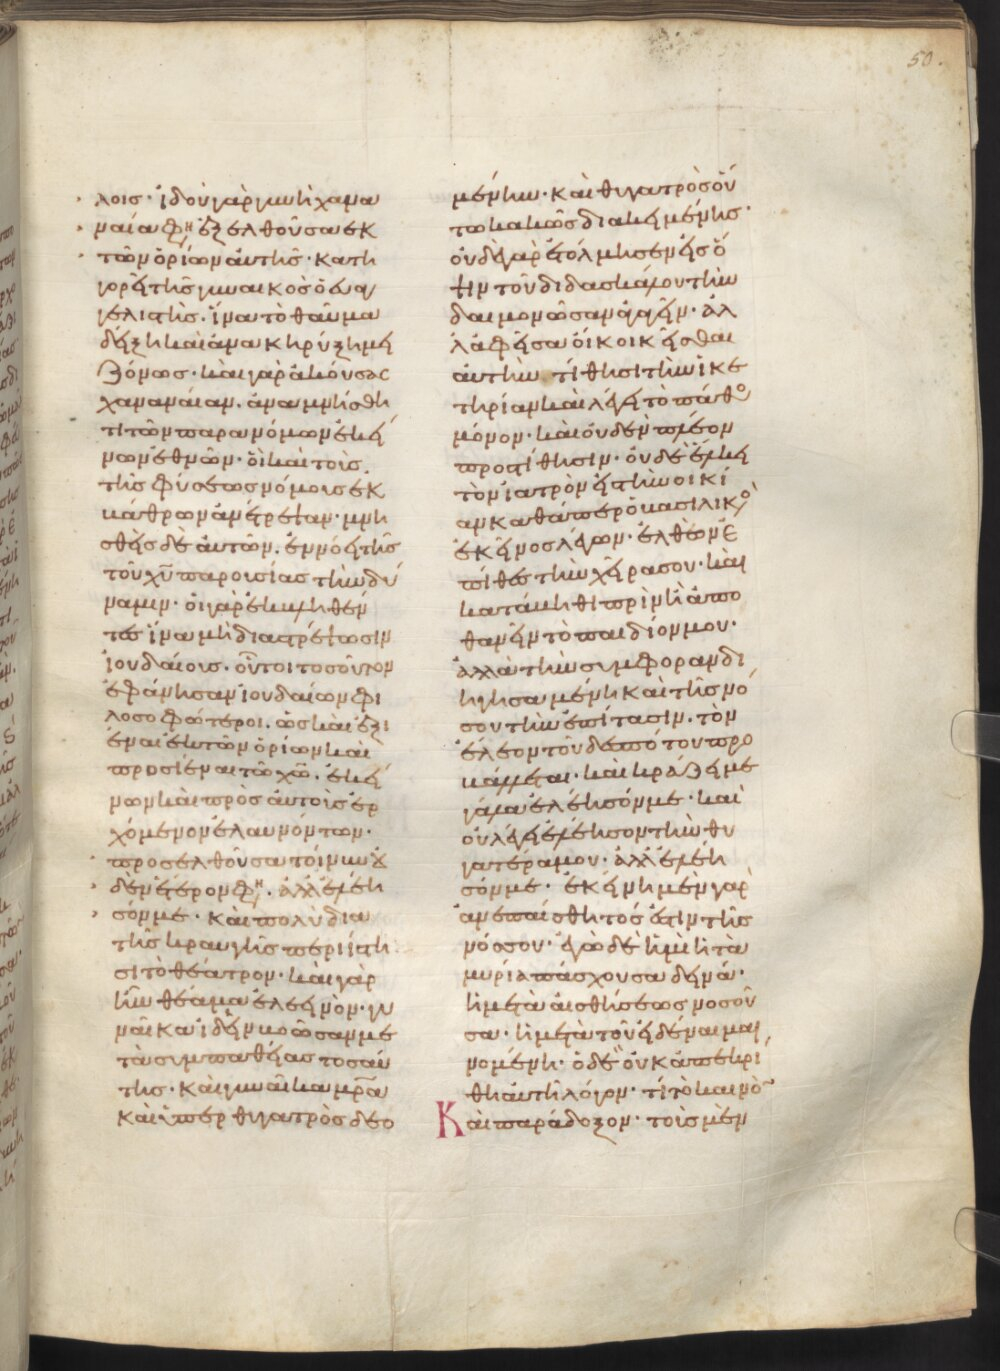 50.
λοις· ἰδοὺ γὰρ γυνὴ χανα
ναία φη ἐξελθοῦσα ἐκ
τῶν ὁρίων αὐτῆς· κατη
γορεῖ τῆς γυναικὸς ὁ εὐαγ
γελιστὴς. ἵνα τὸ θαῦμα
δείξη καὶ ἀνακηρύξη μει
ζόνως· καὶ γὰρ ἀκούσας
χαναναίαν. ἀναμνήσθητι
τι τῶν παρανόμων ἐκεί
νων ἐθνῶν· οἳ καὶ τοὺς
τῆς φύσεως νόμους ἐκ
βάθρων ἀνέτρεψαν· μνη
σθεὶς δὲ αὐτῶν. ἐννόει τῆς
τοῦ χυ παρουσίας τὴν δύ
ναμιν· οἱ γὰρ ἐκβληθέν
τες ἵνα μὴ διαστρέψωσιν
ἰουδαίους. οὗτοι τοσοῦτον
ἐφάνησαν ἰουδαίων φι
λοσοφώτεροι. ὡς καὶ ἐξι
έναι ἐκ τῶν ὁρίων καὶ
προσιέναι τῶ χω. ἐκεί
νων καὶ πρὸς αὐτοὺς ἐρ
χόμενον ἐλαυνόντων·
προσελθοῦσα τοίνυν οὐ
δὲν ἕτερον φη. ἀλλ' ἐλέη
σόν με· καὶ πολὺ διὰ
τῆς κραυγῆς περιίστη
σι τὸ θέατρον· καὶ γὰρ
ἦν θέαμα ἐλεεινὸν· γυ
ναῖκα ἰδεῖν βοῶσαν με
τὰ συμπαθείας τοσαύ
της· καὶ γυναῖκα μρα
καὶ ὑπερ θυγατρὸς δεο
μένην· καὶ θυγατρὸς οὕ
τω κακῶς διακειμένης·
οὐδὲ γὰρ ἐτόλμησεν εἰς ὄ
ψιν τοῦ διδασκάλου τὴν
δαιμονῶσαν ἀγαγεῖν· ἀλ
λ' ἀφεῖσα οἴκοι κεῖσθαι
αὐτὴν τίθησι τὴν ἱκε
τηρίαν καὶ λέγει τὸ πάθος
μόνον· καὶ οὐδὲν πλέον
προστίθησιν· οὐδὲ ἕλκει
τὸν ἰατρὸν εἰς τὴν οἰκί
αν καθάπερ ὁ βασιλικὸς
ἐκεῖνος λέγων· ἐλθὼν ἐ
πίθες τὴν χεῖρα σου· καὶ
κατάβηθι πρὶν ἢ ἀπο
θανεῖν τὸ παιδίον μου·
ἀλλὰ τὴν συμφορὰν δι
ηγησαμένη καὶ τῆς νό
σου τὴν ἐπίτασιν. τὸν
ἔλεον τοῦ δεσπότου προ
βάλλεται· καὶ κράζει με
γάλα ἐλέησόν με· καὶ
οὐ λέγει ἐλέησον τὴν θυ
γατέρα μου· ἀλλ' ἐλέη
σόν με· ἐκείνη μὲν γὰρ
ἀνεπαίσθητός ἐστιν τῆς
νόσου· ἐγὼ δὲ ἡμὶ ἡ τὰ
μυρία πάσχουσα δεινά·
ἡ μετὰ αἰσθήσεως νοσοῦ
σα· ἡ μετὰ τοῦ εἰδέναι μαι
νομένη· ὁ δὲ οὐκ ἀπεκρί
θη αὐτῆ λόγον· τί τὸ καινὸ
Καὶ παράδοξον· τοὺς μὲν